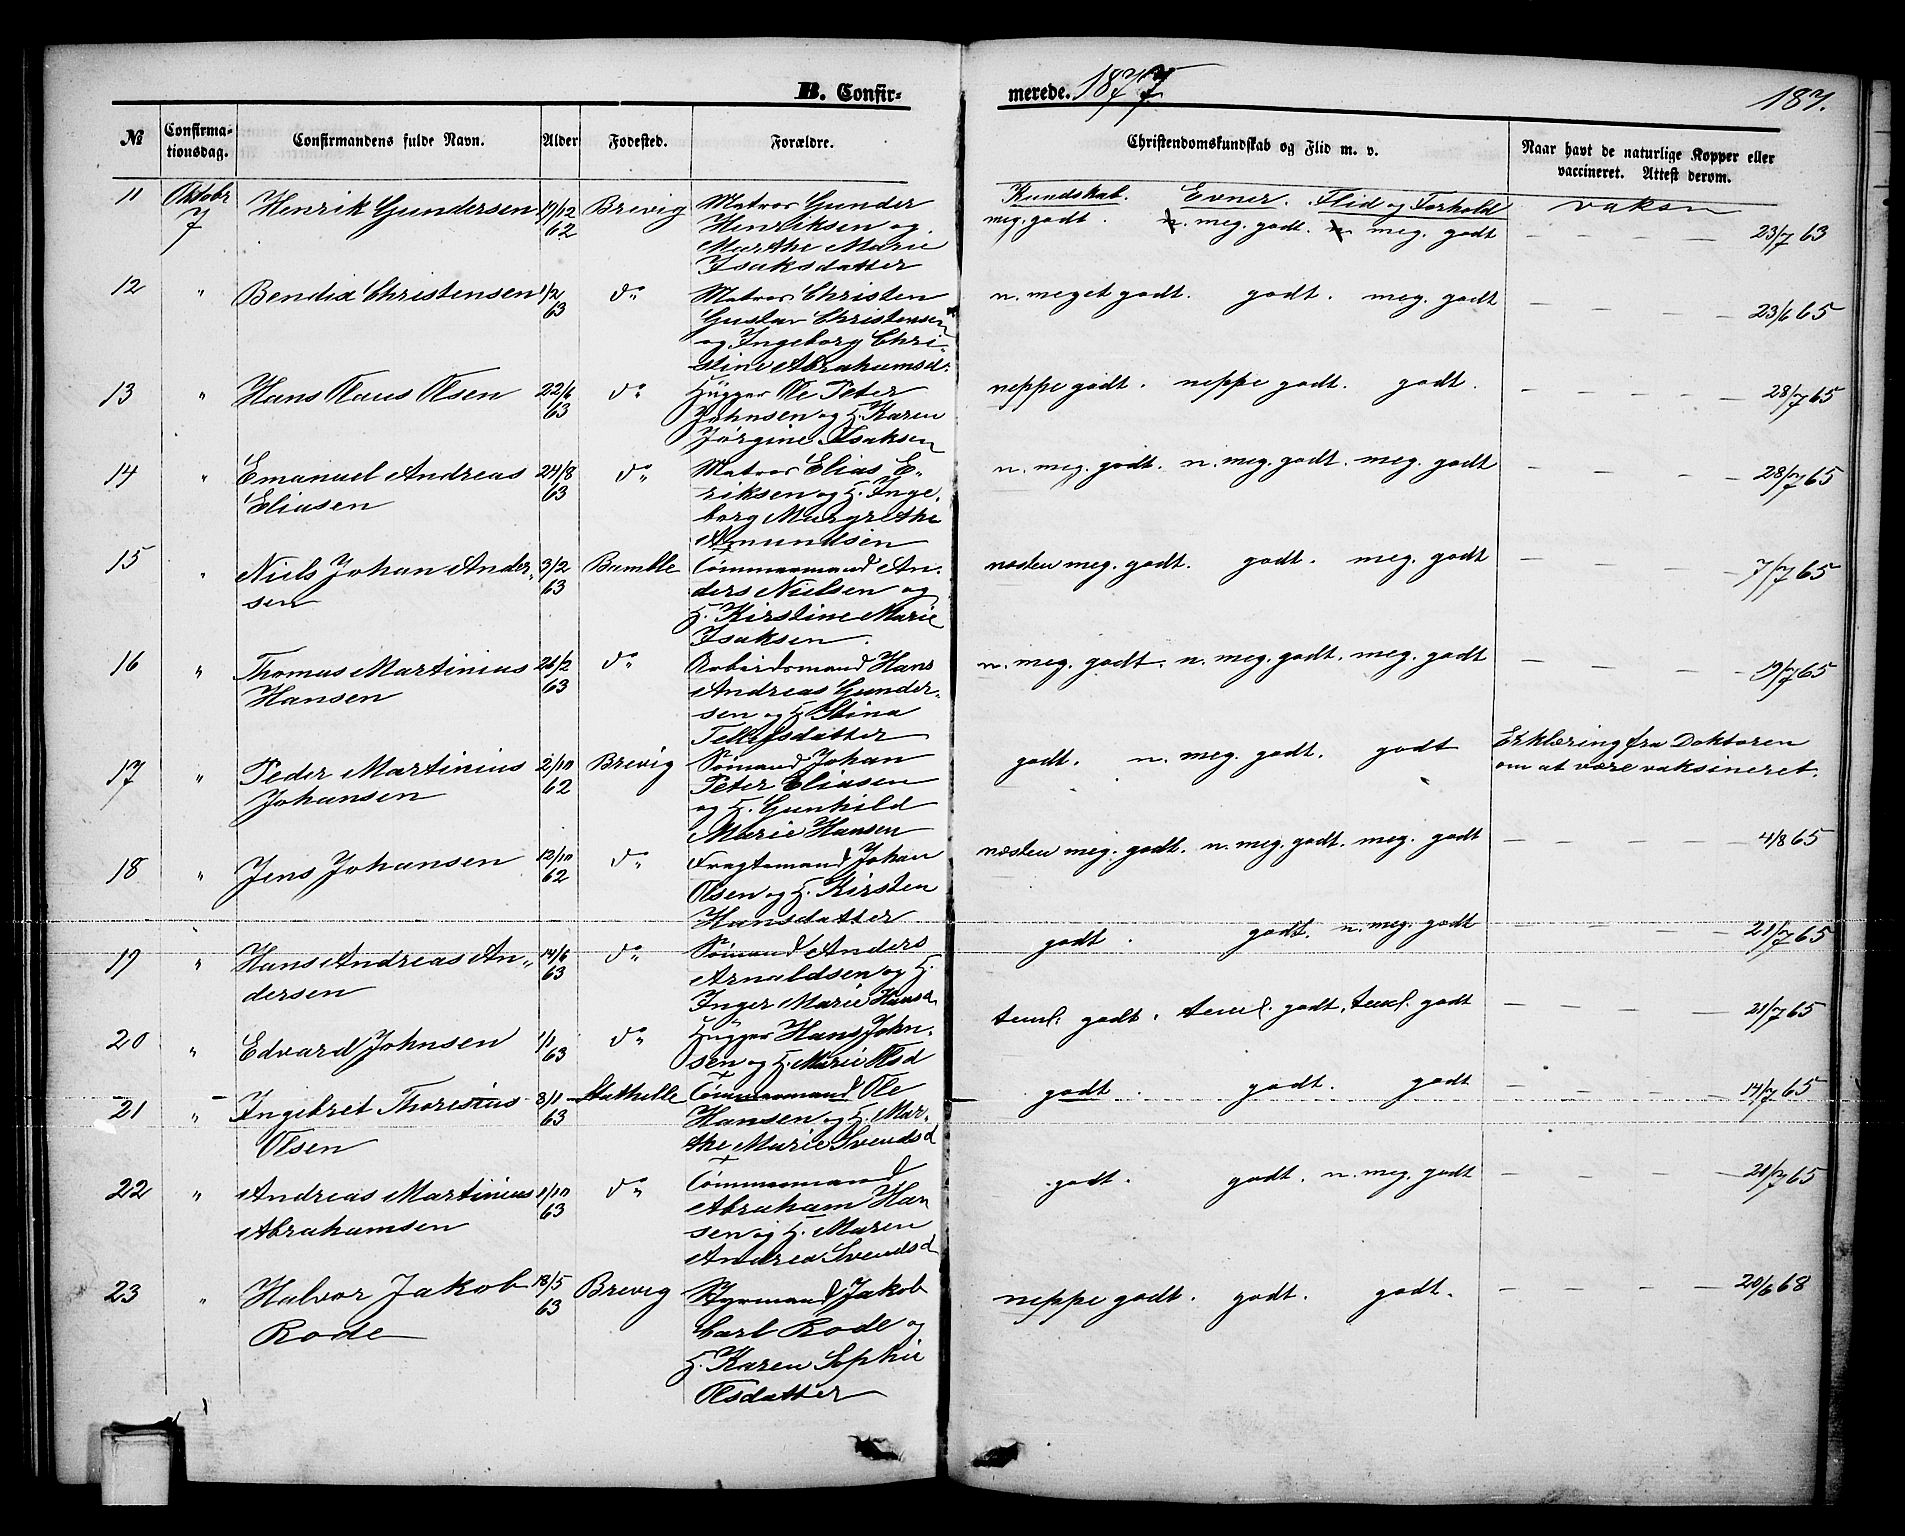 B. Confir-
merede. 1877
187.
№ Confirma-tionsdag. Confirmandens fulde Navn. Alder Fødested. Forældre. Christendomskundskab og Flid m. v. Naar havt de naturlige Kopper eller vaccineret. Attest derom.
Kundskab. Evner. Flid og Forhold vaksn
11 Oktobr 7 Henrik Gundersen 19/12 62 Brevig Matros Gunder meg. godt. n. meg. godt. n. meg. godt — — — — 23/7 63
Henriksen og
Marthe Marie
Isaksdatter
12 " Bendix Christensen 1/2 63 do Matros Christen n. meget godt. godt. meg. godt — — — — 23/6 65
Gustav Christensen
og Ingeborg Chri-
stine Abrahamsd.
13 " Hans Claus Olsen 22/6 63 do Hugger Ole Peter neppe godt. neppe godt. godt. — — — — 28/7 65
Johnsen og H. Karen
Jørgine Isaksen
14 " Emanuel Andreas 24/8 63 do Matros Elias E- n. meg. godt. n. meg. godt. meg. godt — — — — 28/7 65
Eliasen riksen og H. Inge-
borg Margrethe
Amundsen
15 " Niels Johan Ander- 3/2 63 Bamble Tømmermand An- næsten meg. godt. godt. meg. godt — — — — 7/7 65
sen ders Nielsen og
H. Kirstine Marie
Isaksen.
16 " Thomas Martinius 26/2 63 do Arbeidsmand Hans n. meg. godt. n. meg. godt. meg. godt — — — — 19/7 65
Hansen Andreas Gunder-
sen og H. Stina
Tellefsdatter
17 " Peder Martinius 2/10 62 Brevig Sømand Johan godt. n. meg. godt. godt Erklæring fra Doktoren
Johansen Peter Eliasen om at være vaksineret.
og H. Gunhild
Marie Hansen
18 " Jens Johansen 12/10 62 do Fragtemand Johan næsten meg. godt. n. meg. godt. meg. godt — — — — 4/8 65
Olsen og H. Kirsten
Hansdatter
19 " Hans Andreas An- 14/6 63 do Sømand Anders godt. godt. n. meg. godt — — — — 21/7 65
dersen Arnoldsen og H.
Inger Marie Hansd
20 " Edvard Johnsen 1/1 63 do Hugger Hans John- teml. godt. teml. godt. teml. godt — — — — 21/7 65
sen og H. Marie Olsd
21 " Ingebret Thoresius 8/1 63 Stathelle Tømmermand Ole godt. godt. godt — — — — 14/7 65
Olsen Hansen og H. Mar-
the Marie Svendsd
22 " Andreas Martinius 1/10 63 do Tømmermand godt. godt. n. meg. godt — — — — 21/7 65
Abrahamsen Abraham Han
sen og H. Maren
Andrea Svendsd
23 " Halvor Jakob 18/5 63 Brevig Styrmand Jakob neppe godt. godt. godt. — — — — 20/6 68
Rode Carl Rode og
H. Karen Sophie
Olsdatter